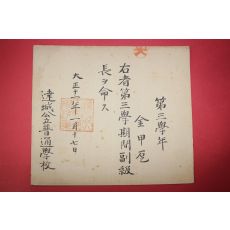 第三學年
金甲
右者第三學期間副級
長ヲ命ス
大正十二年一月十七日
達城公立普通學校